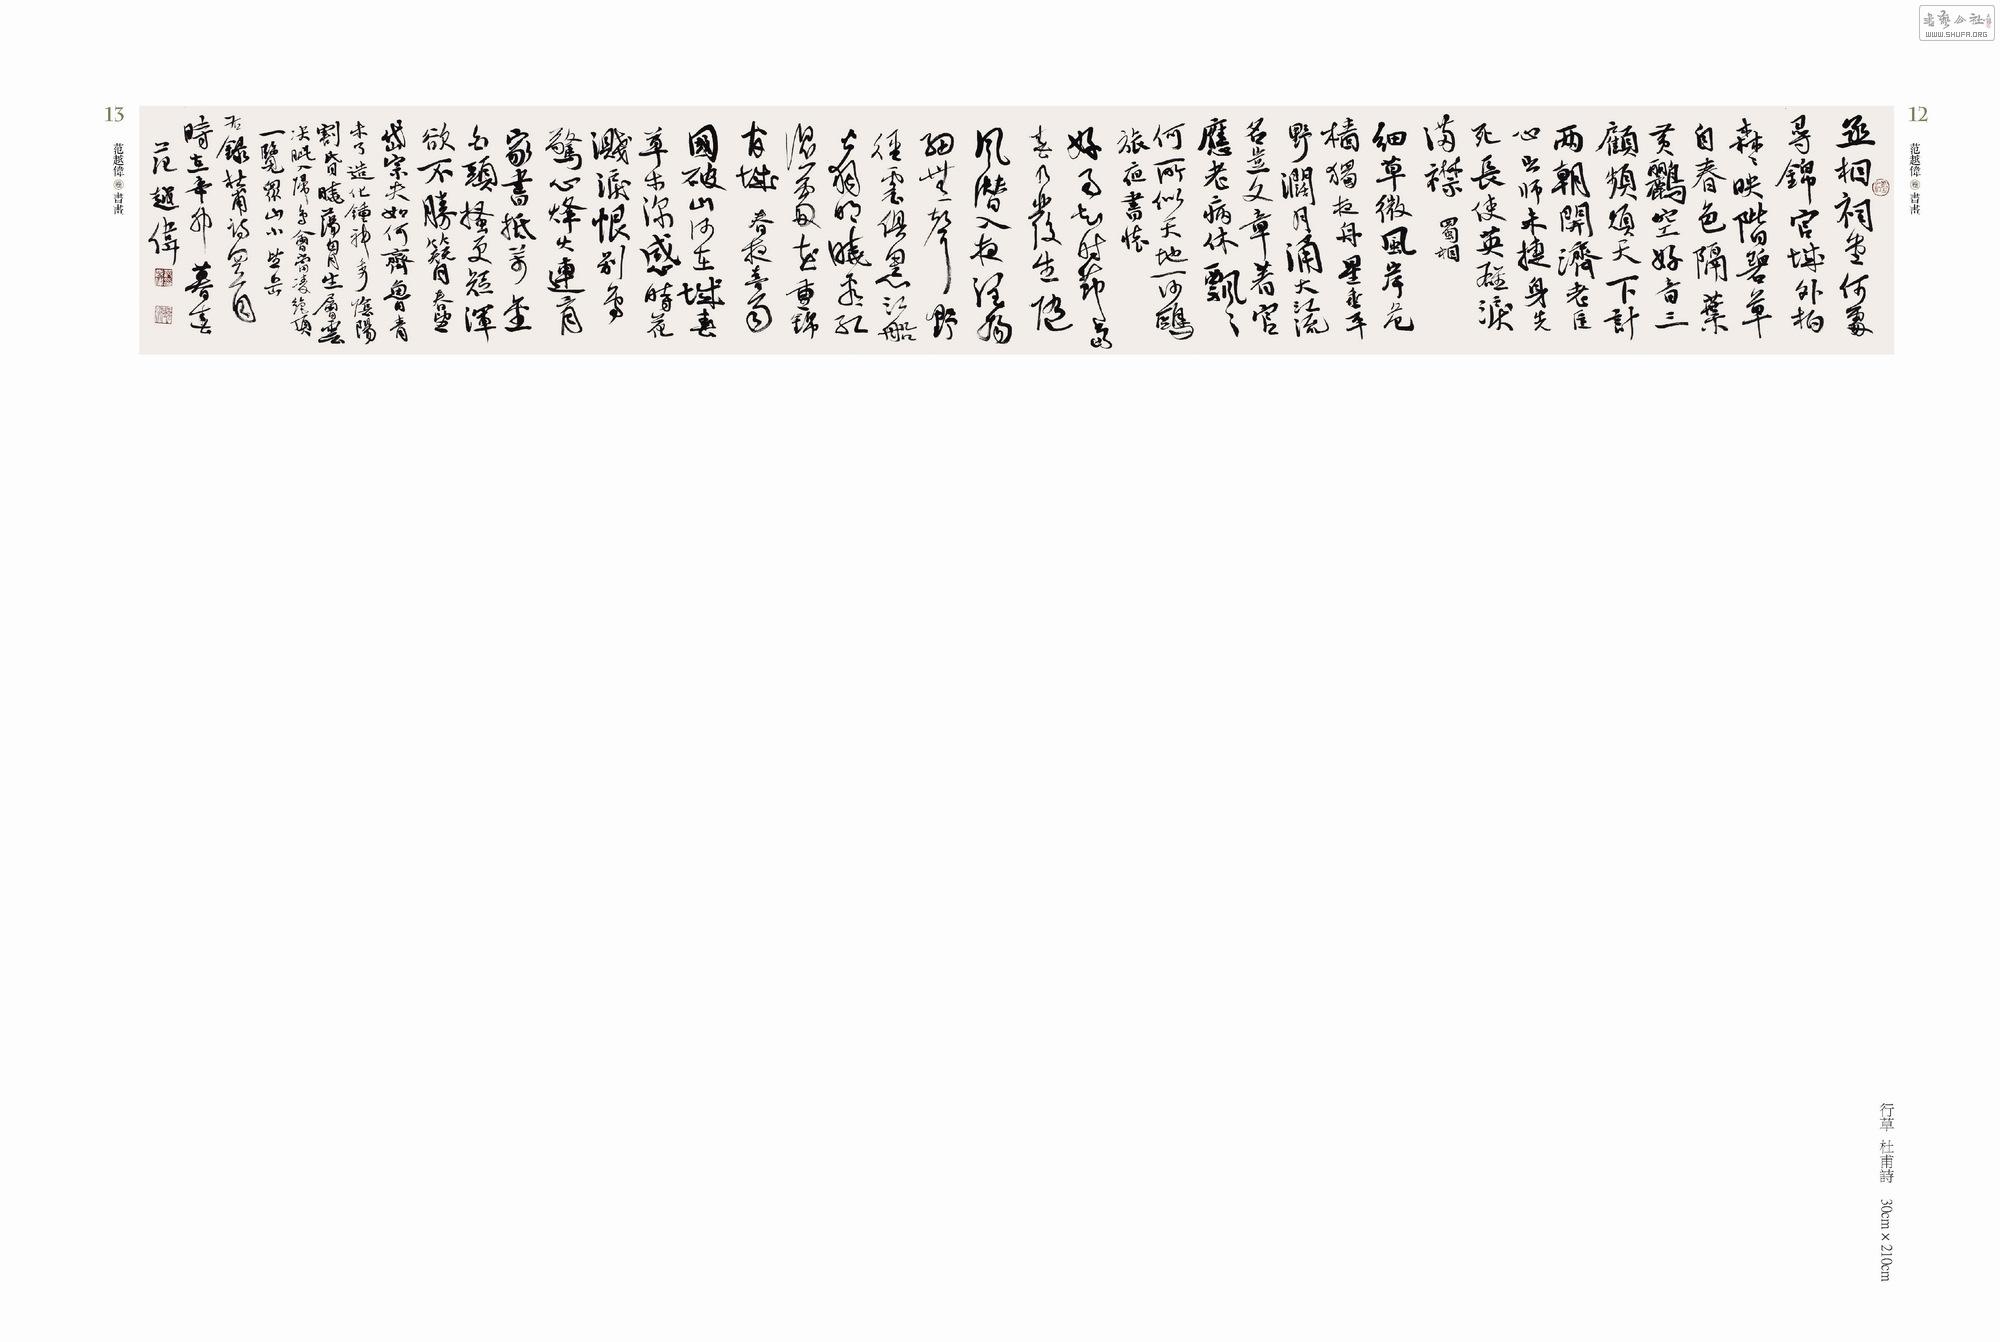 書藝公社
WWW.SHUFA.ORG
12
范越偉 卷 書畫
丞相祠堂何處
尋錦官城外柏
森々映階碧草
自春色隔葉
黃鸝空好音三
顧頻煩天下計
兩朝開濟老臣
心出師未捷身先
死長使英雄淚
滿襟 蜀相
細草微風岸危
檣獨夜舟星垂平
野濶月涌大江流
名豈文章著官
應老病休飄々
何所似天地一沙鷗
旅夜書懷
好雨知時節當
春乃發生隨
風潛入夜潤物
細無聲野
徑雲俱黑江船
火獨明曉看紅
濕處花重錦
官城 春夜喜雨
國破山河在城春
草木深感時花
濺淚恨別鳥
驚心烽火連三月
家書抵萬金
白頭搔更短渾
欲不勝簪 春望
岱宗夫如何齊魯青
未了造化鍾神秀陰陽
割昏曉蕩胸生層雲
決眥入歸鳥會當凌絕頂
一覽眾山小 望岳
右錄杜甫詩五首
時在辛卯暮春
范越偉
13
范越偉 卷 書畫
行草 杜甫詩 30cm×210cm